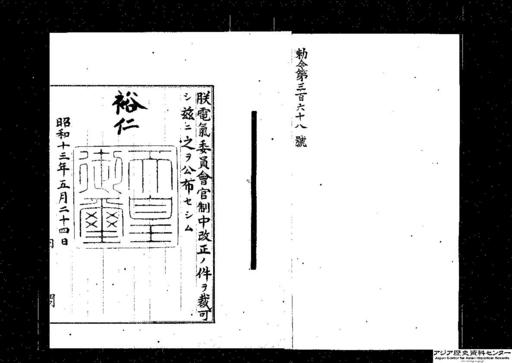 勅令第三百六十八號
朕電氣委員會官制中改正ノ件ヲ裁可
シ茲ニ之ヲ公布セシム
裕仁
天皇
御璽
昭和十三年五月二十四日
アジア歴史資料センター
Japan Center for Asian Historical Records